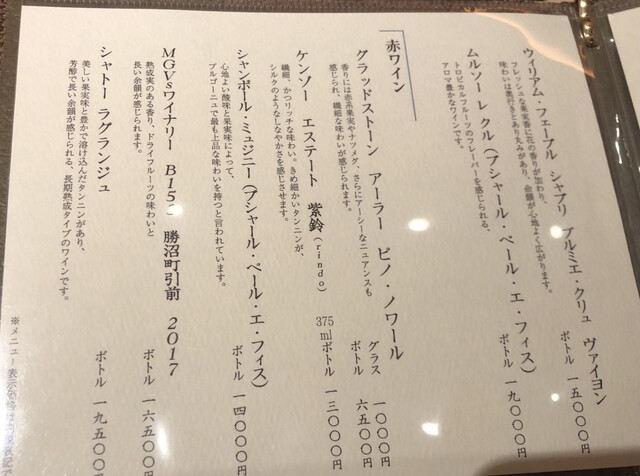 ウィリアム・フェーブル シャブリ プルミエ・クリュ ヴァイヨン
フレッシュな果実香に花の香りが加わり、
味わいは奥行きとあり丸みがあり、余韻が心地よく広がります。
ボトル 一五〇〇〇円
ムルソー レ クル（ブシャール・ペール・エ・フィス）
トロピカルフルーツのフレーバーを感じられる、
アロマ豊かなワインです。
ボトル 一九〇〇〇円
赤ワイン
グラッドストーン アーラー ピノ・ノワール
香りには赤系果実やナツメグ、さらにアーシーなニュアンスも
感じられ、繊細な味わいが感じられます。
グラス 一〇〇〇円
ボトル 六五〇〇円
ケンゾー エステート 紫鈴（rindo）
繊細、かつリッチな味わい。きめ細かいタンニンが、
シルクのようなしなやかさを感じさせます。
375mlボトル 一三〇〇〇円
シャンボール・ミュジニー（ブシャール・ペール・エ・フィス）
心地よい酸味と果実味によって、
ブルゴーニュで最も上品な味わいを持つと言われています。
ボトル 一四〇〇〇円
MGVsワイナリー B153 勝沼町引前 2017
熟成実のある香り、ドライフルーツの味わいと
長い余韻が感じられます。
ボトル 一六五〇〇円
シャトー ラグランジュ
美しい果実味と豊かで溶け込んだタンニンがあり、
芳醇で長い余韻が感じられる、長期熟成タイプのワインです。
ボトル 一九五〇〇円
※メニュー表示価格は